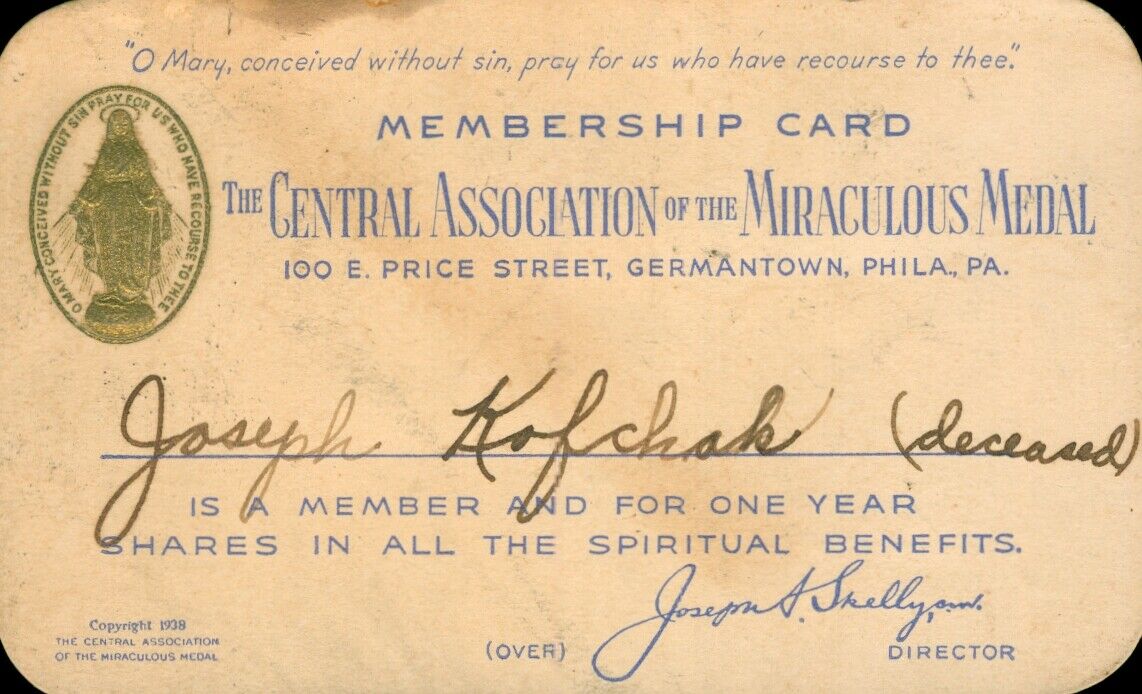 "O Mary, conceived without sin, pray for us who have recourse to thee."
MEMBERSHIP CARD
O MARY CONCEIVED WITHOUT SIN PRAY FOR US WHO HAVE RECOURSE TO THEE
THE CENTRAL ASSOCIATION OF THE MIRACULOUS MEDAL
100 E. PRICE STREET, GERMANTOWN, PHILA., PA.
Joseph Kofchak (deceased)
IS A MEMBER AND FOR ONE YEAR
SHARES IN ALL THE SPIRITUAL BENEFITS.
Joseph A. Skelly, c.m.
Copyright 1938
THE CENTRAL ASSOCIATION
OF THE MIRACULOUS MEDAL
(OVER)
DIRECTOR